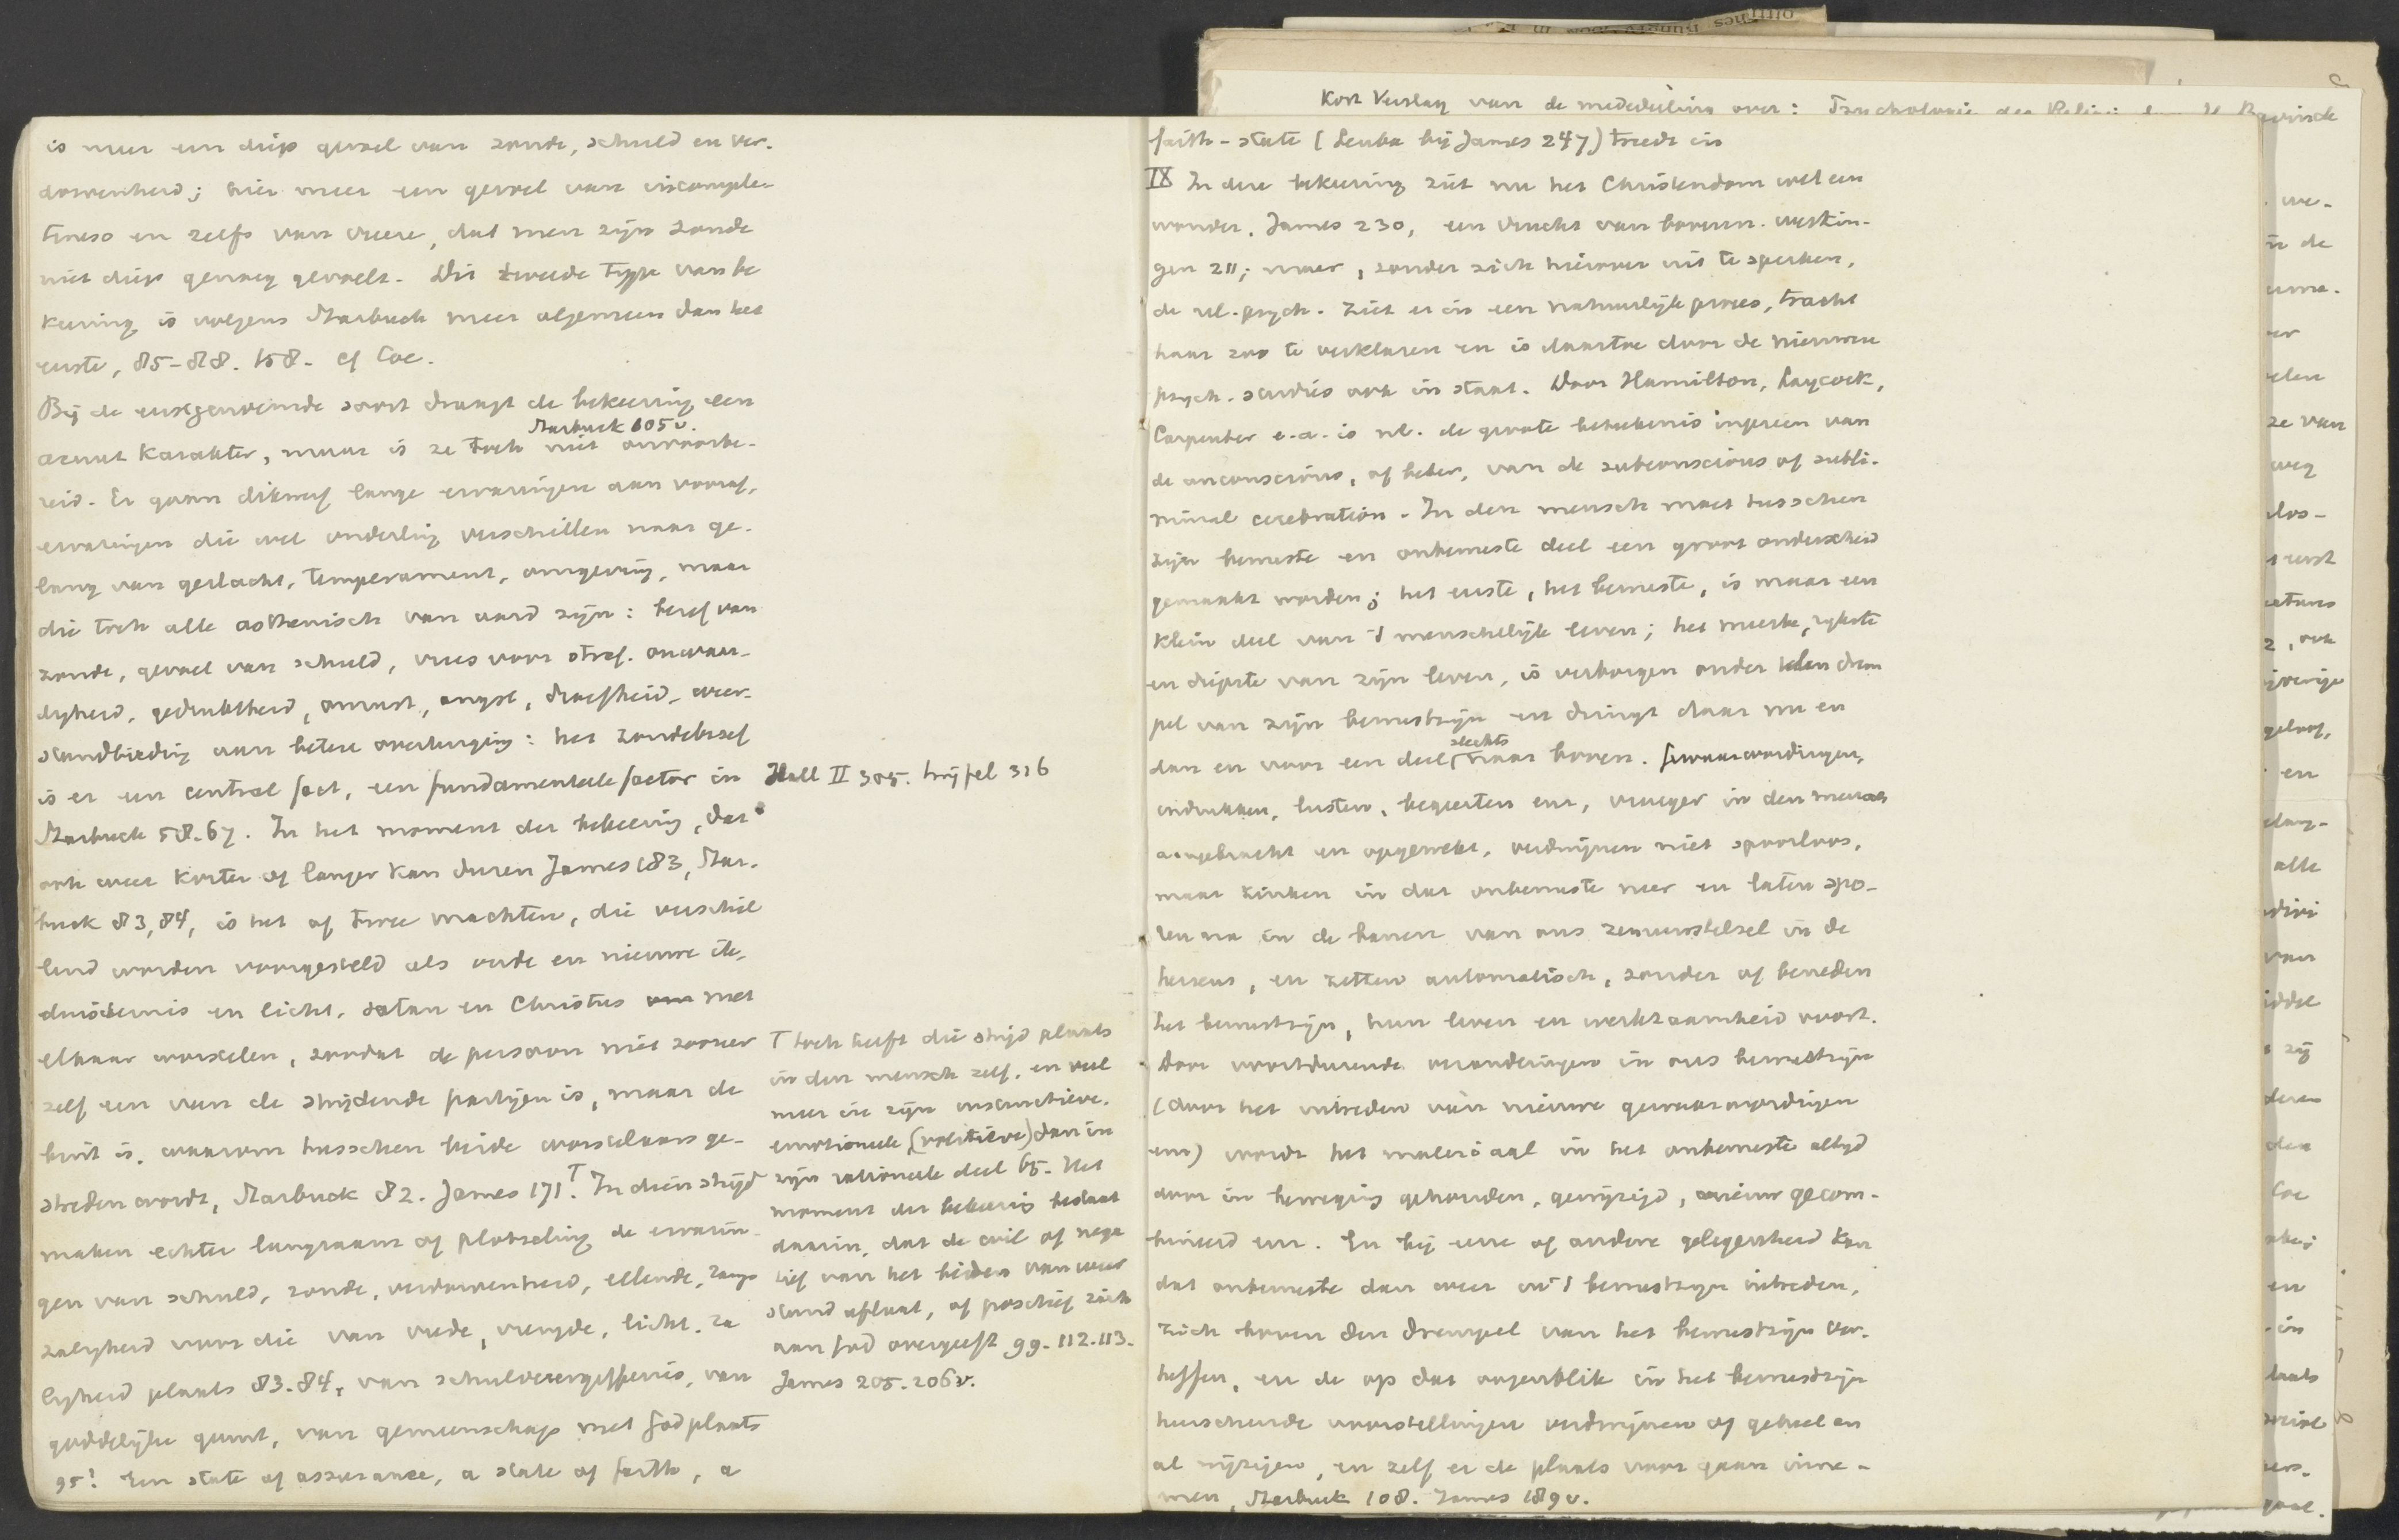 is meer een diep gevoel van zonde, schuld en ver-
dorvenheid; hier meer een gevoel van incomple-
teness en zelfs van vreeze, dat men zijn zonde
niet diep genoeg gevoelt. Dit tweede type van be
keering is volgens Starbuck meer algemeen dan het
eerste, 85-88. 158. cf Coe.
Bij de eerstgenoemde soort draagt de bekeering een
Starbuck 105v.
acuut karakter, maar is ze toch niet onvoorbe-
reid. Er gaan dikwerf lange ervaringen aan vooraf,
ervaringen die wel onderling verschillen naar ge-
lang van geslacht, temperament, omgeving, maar
die toch alle asthenisch van aard zijn: besef van
zonde, gevoel van schuld, vrees voor straf. onwaar-
digheid, gedruktheid, onrust, angst, droefheid, weer-
standbieding aan betere overtuiging: het zondebesef
is er een central fact, een fundamenteele factor in
Starbuck 58-67. In het moment der bekeering, dat
ook weer korter of langer kan duren James 183, Star-
buck 83, 84, is het of twee machten, die verschil
lend worden voorgesteld als oude en nieuwe ik,
duisternis en licht, satan en Christus met
elkaar worstelen, zoodat de persoon niet zoozeer
zelf een van de strijdende partijen is, maar de
buit is, waarom tusschen beide worstelaars ge-
streden wordt, Starbuck 82. James 171. T In dien strijd
maken echter langzaam of plotseling de ervarin-
gen van schuld, zonde, verdorvenheid, ellende,
zaligheid voor die van vrede, vreugde, licht, za
ligheid plaats 83.84, van schuldvergiffenis, van
goddelijke gunst, van gemeenschap met God plaats
95! Een state of assurance, a state of faith, a
Hall II 305. Snijfel 316
T toch heeft die strijd plaats
in den mensch zelf, en veel
meer in zijn instinctieve,
emotioneele (volitieve) dan in
zijn rationeele deel 65. Het
moment der bekeering bestaat
daarin, dat de wil of nega
tief van het bieden van weer
stand aflaat, of positief zich
aan God overgeeft 99. 112. 113.
James 205. 206v.
Kort Verslag van de mededeeling over: Psychologie der Religie door H. Bavinck
faith-state (Leuba bij James 247) treedt in
IX In deze bekeering ziet nu het Christendom wel een
wonder, James 230, een vrucht van bovenn. werkin-
gen 211; maar, zonder zich hierover uit te spreken,
de rel. psych. ziet er in een natuurlijk proces, tracht
haar zoo te verklaren en is daartoe door de nieuwere
psych. studiën ook in staat. Door Hamilton, Laycock,
Carpenter e.a. is nl. de groote beteekenis ingezien van
de unconscious, of beter, van de subconscious of subli-
minal cerebration. In den mensch moet tusschen
zijn bewuste en onbewuste deel een groot onderscheid
gemaakt worden; het eerste, het bewuste, is maar een
klein deel van 't menschelijk leven; het meeste, rijkste
en diepste van zijn leven, is verborgen onder den drem
pel van zijn bewustzijn en dringt daar nu en
dan en voor een deel slechts naar boven. Gewaarwordingen,
indrukken, lusten, begeerten enz, vroeger in den mensch
aangebracht en opgewekt, verdwijnen niet spoorloos,
maar zinken in dat onbewuste neer en laten spo-
ren na in de banen van ons zenuwstelsel in de
hersens, en zetten automatisch, zonder of beneden
het bewustzijn, hun leven en werkzaamheid voort.
Door voortdurende veranderingen in ons bewustzijn
(door het intreden van nieuwe gewaarwordingen
enz) wordt het materiaal in het onbewuste altijd
door in beweging gehouden, gewijzigd, opnieuw gecom-
bineerd enz. En bij eene of andere gelegenheid kan
dat onbewuste dan weer in 't bewustzijn intreden,
zich boven den drempel van het bewustzijn ver-
heffen, en de op dat oogenblik in het bewustzijn
heerschende voorstellingen verdwijnen of geheel en
al wijzigen, en zelf er de plaats voor gaan inne-
men, Starbuck 108. James 189v.